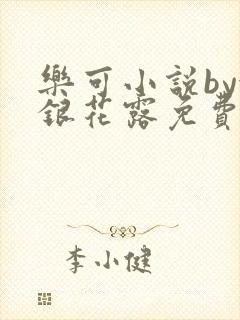 樂可小說by
銀花露免費
李小健